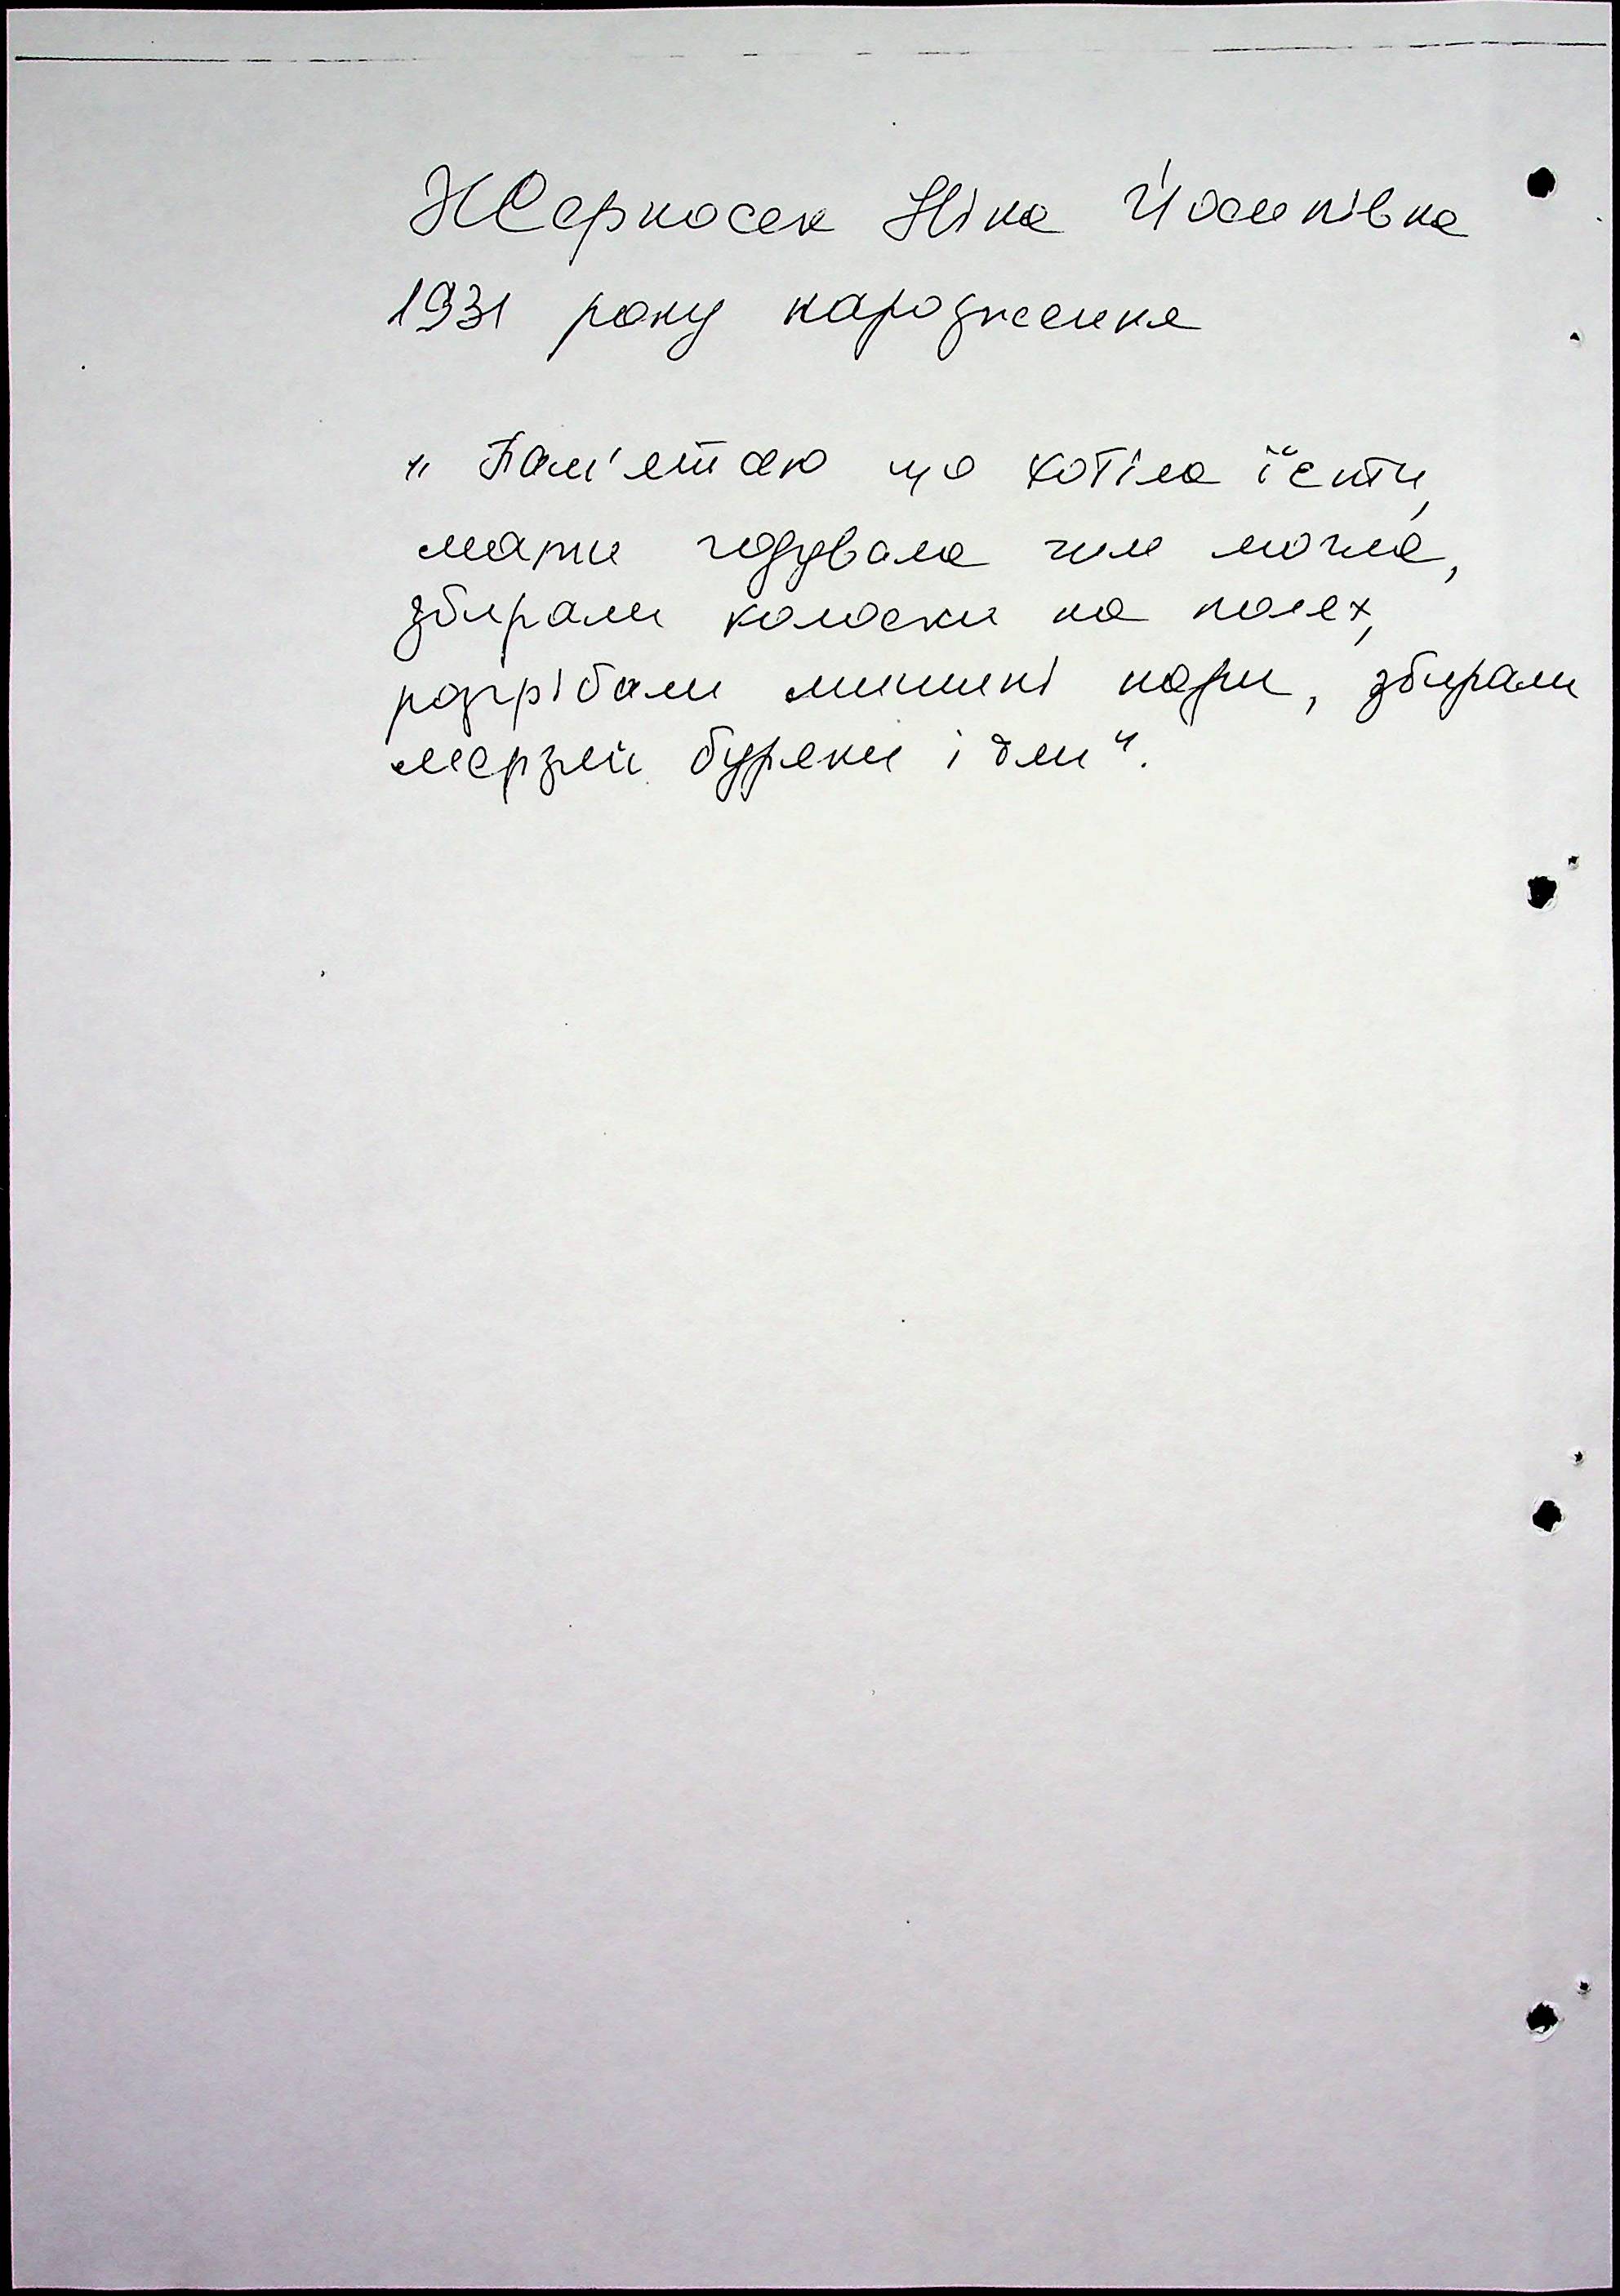 Жерносек Ніна Йосипівна
1931 року народження
„ Пам'ятаю що хотіла їсти,
мати годувала чим могла,
збирали колоски на полях,
розгрібали мишині нори, збирали
мерзлі буряки і їли".